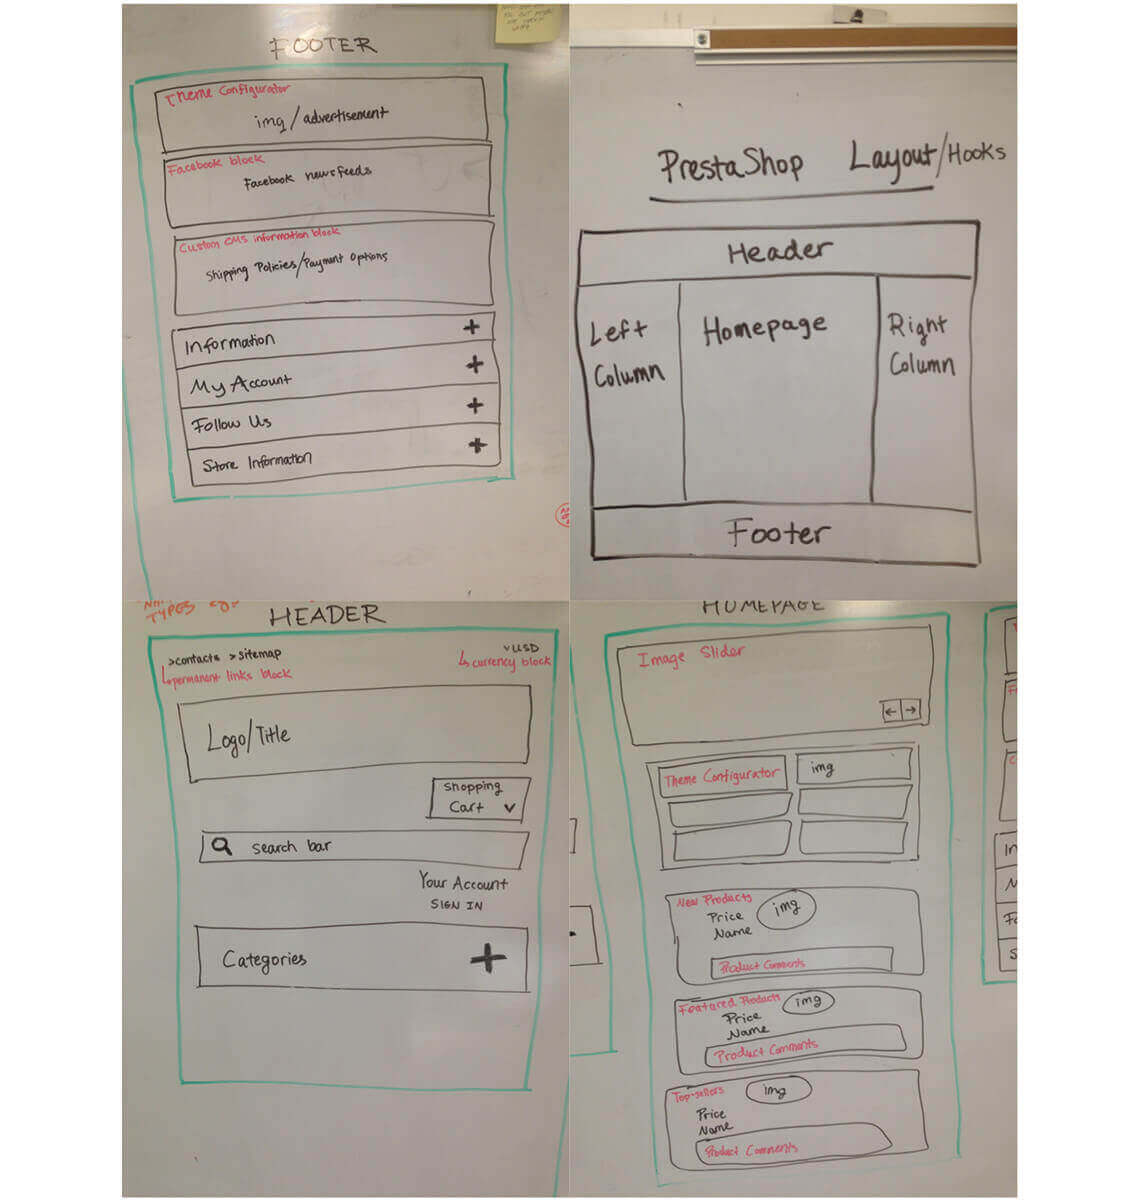 FOOTER
Theme Configurator
img/advertisement
Facebook block
Facebook newsfeeds
Custom CMS information block
Shipping Policies/Payment Options
Information +
My Account +
Follow Us +
Store Information +
PrestaShop Layout/Hooks
Header
Left Column
Homepage
Right Column
Footer
TYPES
HEADER
>contacts >sitemap
permanent links block
v USD
currency block
Logo/Title
Shopping
Cart v
search bar
Your Account
SIGN IN
Categories +
HOMEPAGE
Image Slider
← →
Theme Configurator
img
New Products
Price
Name
img
Product Comments
Featured Products
Price
Name
img
Product Comments
Top-sellers
Price
Name
img
Product Comments